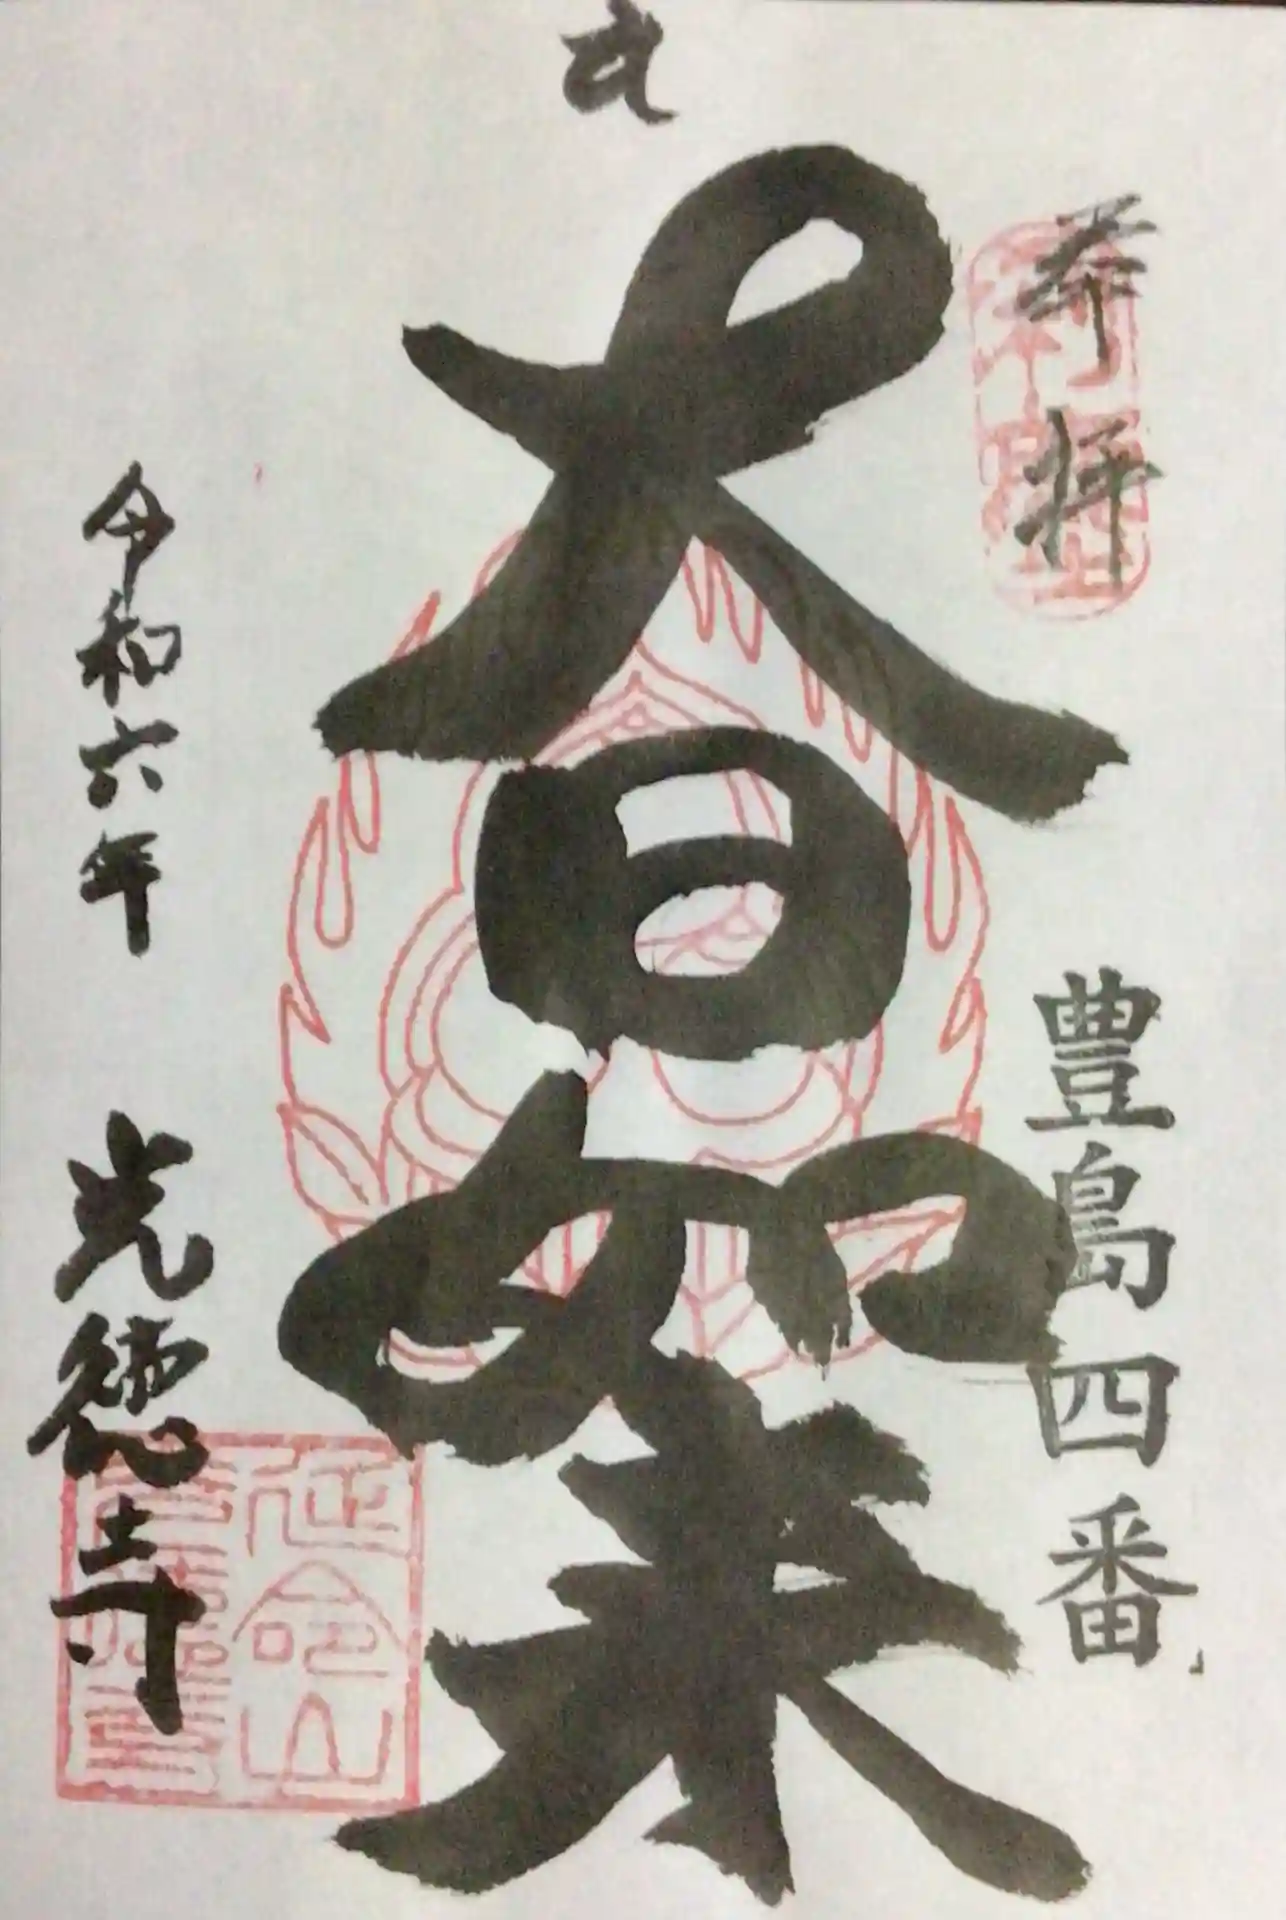 奉拝
豊島四番
大日如来
令和六年
光徳寺
延命山